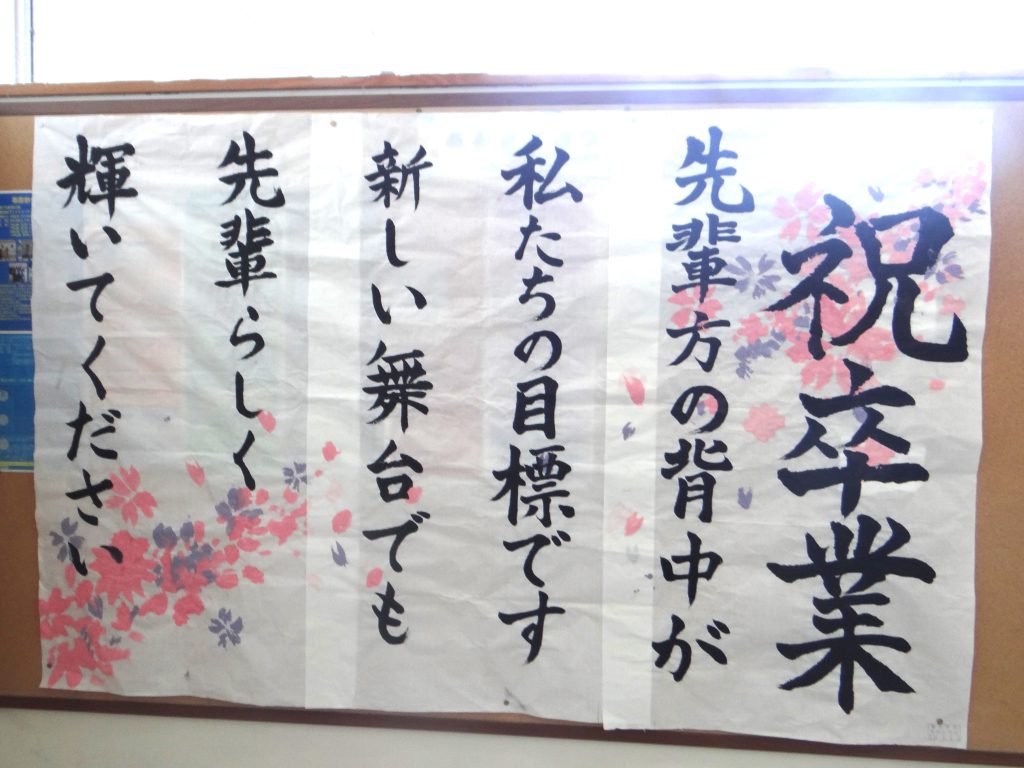 祝卒業
先輩方の背中が
私たちの目標です
新しい舞台でも
先輩らしく
輝いてください